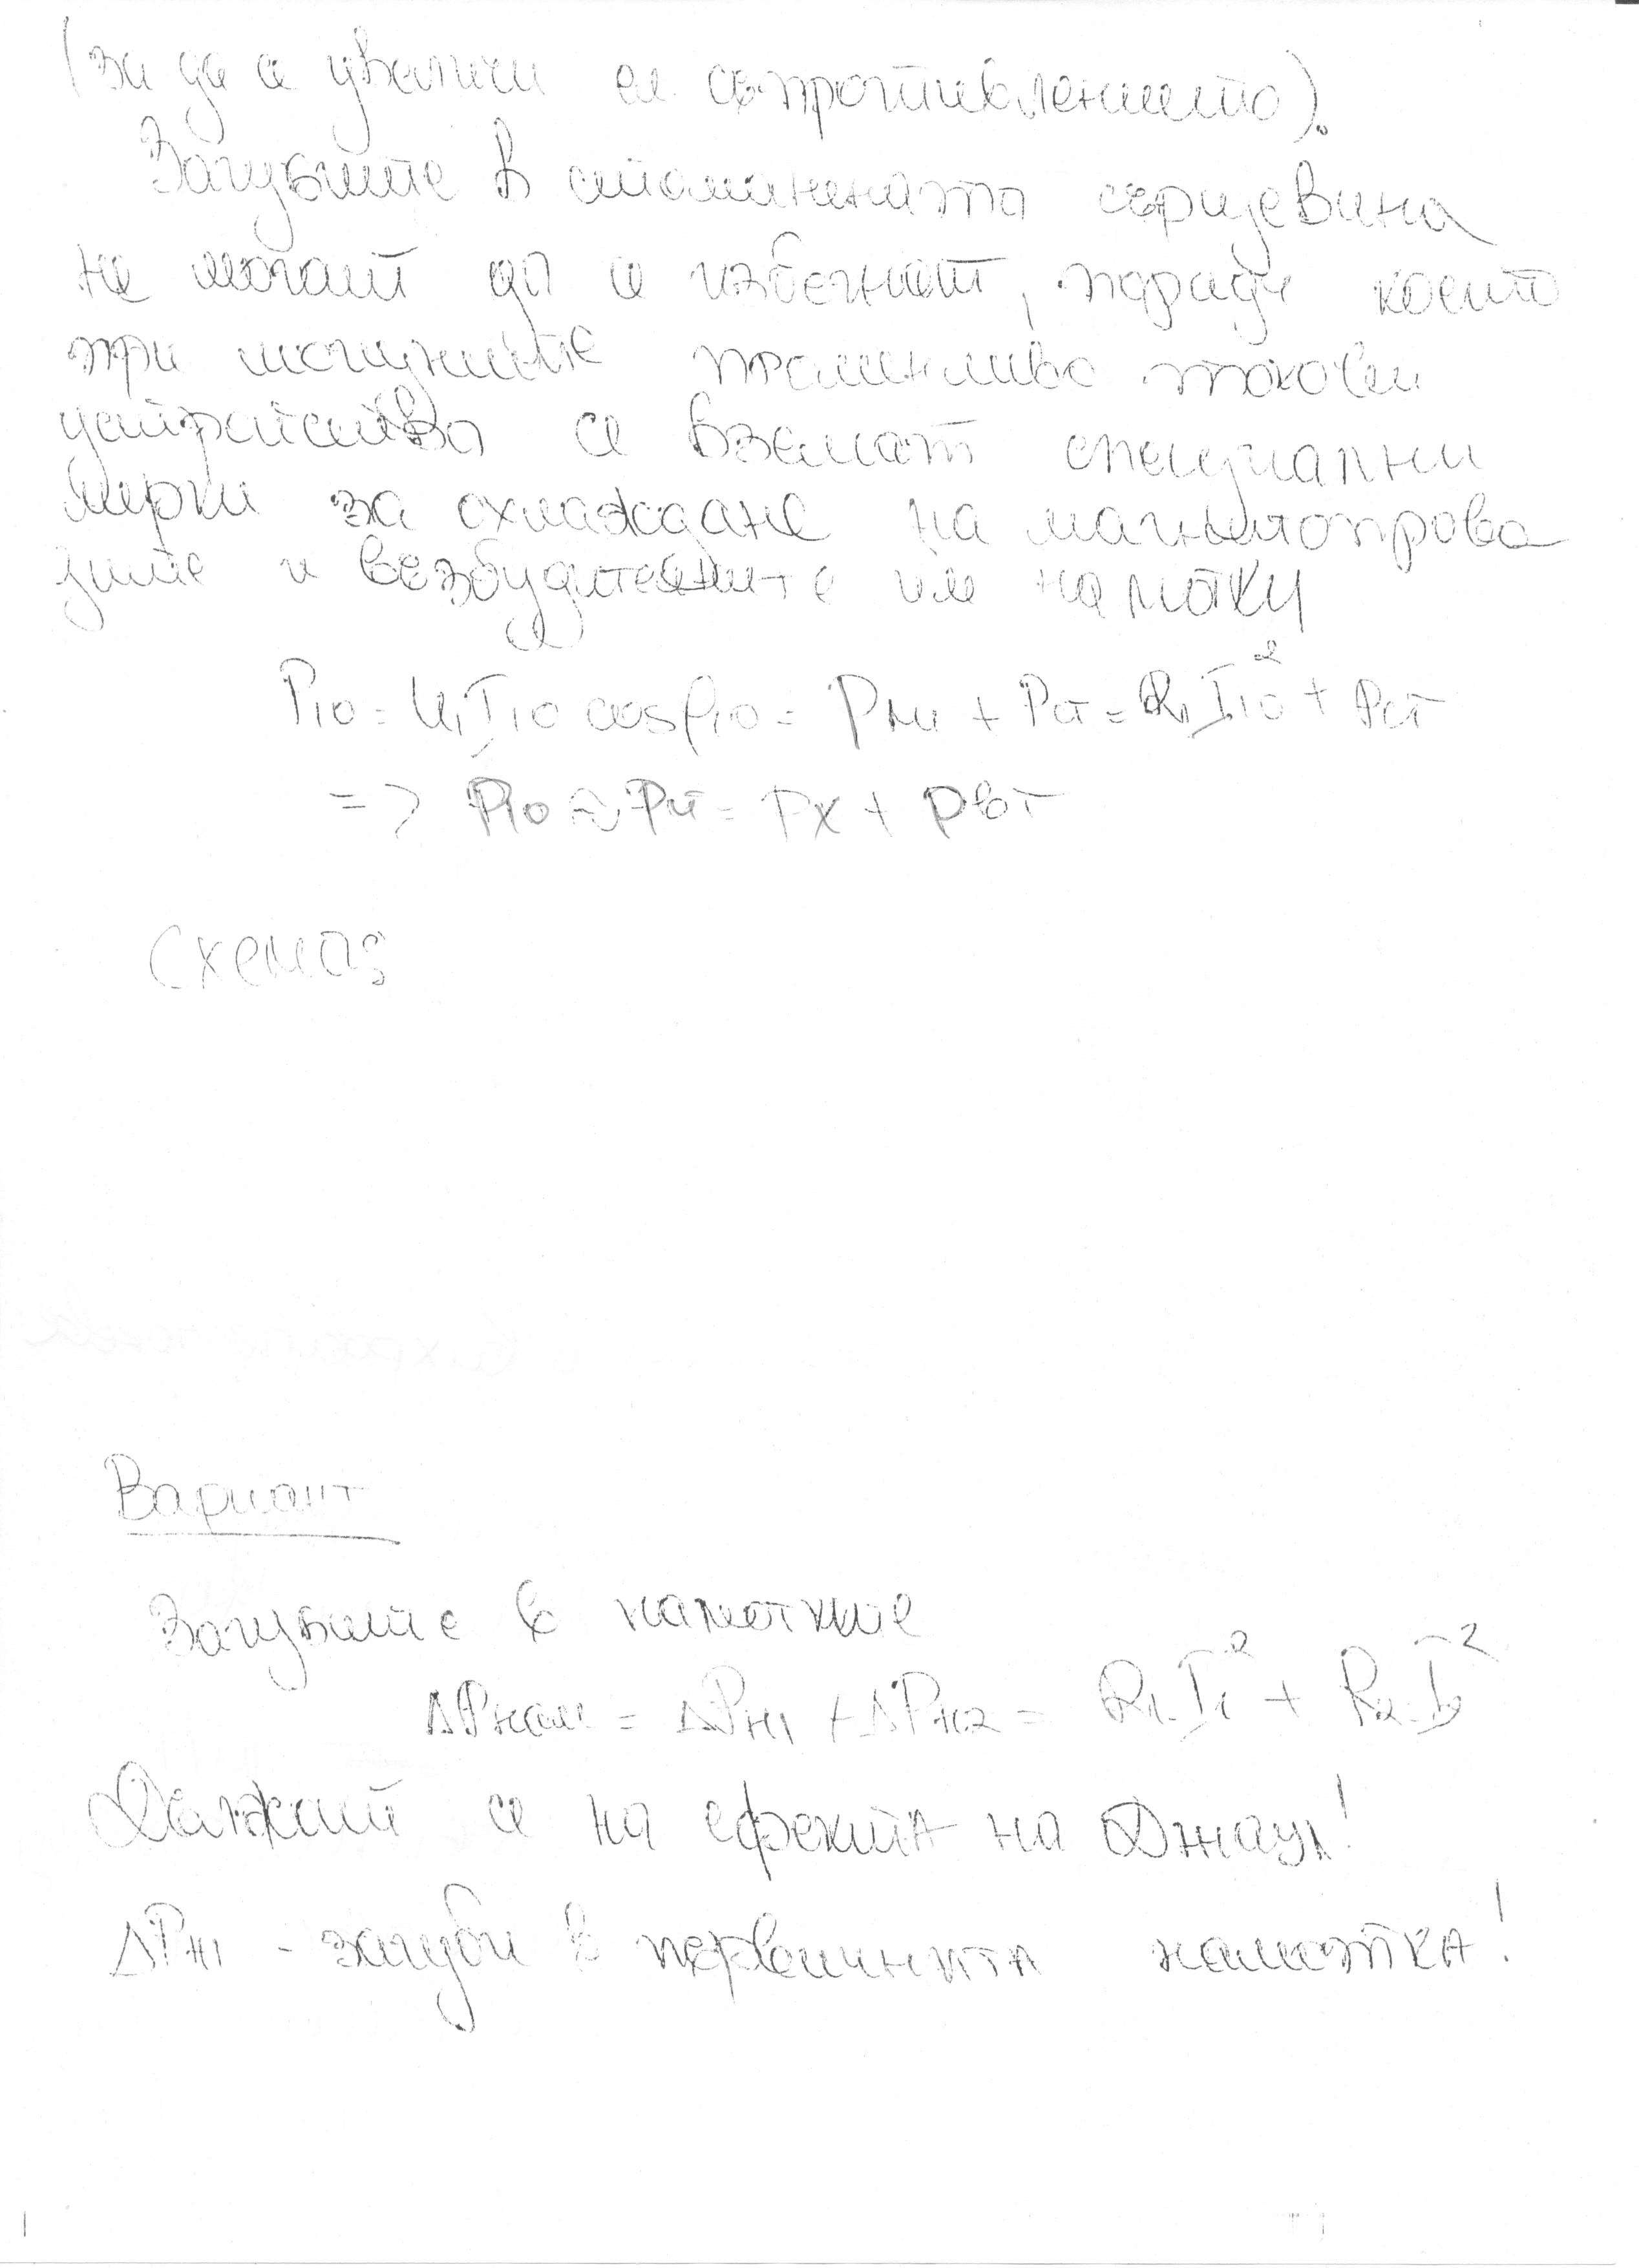 (за да се увеличи ел. съпротивлението).
Загубите в стоманената сърцевина
не могат да се избегнат, поради което
при мощните променливо токови
устройства се вземат специални
мерки за охлаждане на магнитопрово
дите и възбудителните им намотки
P10 = U1I10 cosφ10 = Pм1 + Pст = R1I10² + Pст
=> P10 ≈ Pст = Pх + Pвт
Схема:
Вариант
Загубите в намотките
ΔPнам = ΔPн1 + ΔPн2 = R1.I1² + R2.I2²
Дължат се на ефекта на Джаул!
ΔPн1 - загуби в първичната намотка!